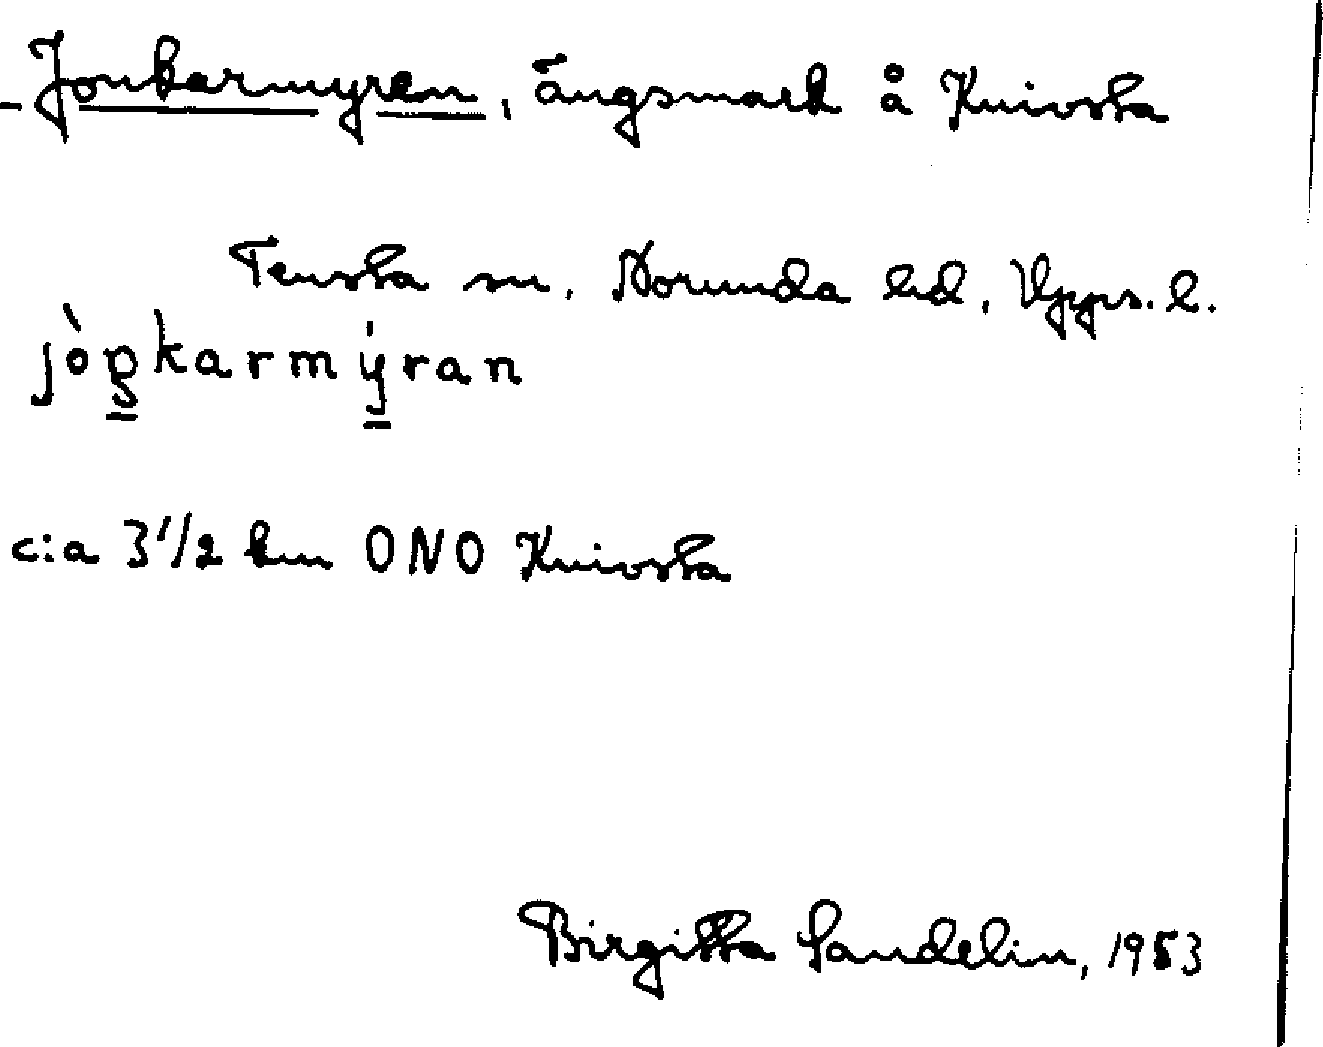 Jonkarmyren, ängsmark å Knivsta
Tensta sn. Norunda hd, Upps. l.
jòŋkarmýran
c:a 3 1/2 km ONO Knivsta
Birgitta Sandelin, 1953